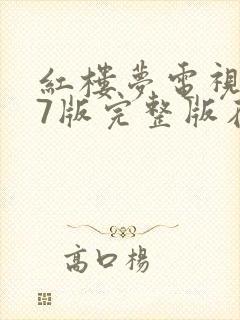 紅樓夢電視
7版完整版
高口楊